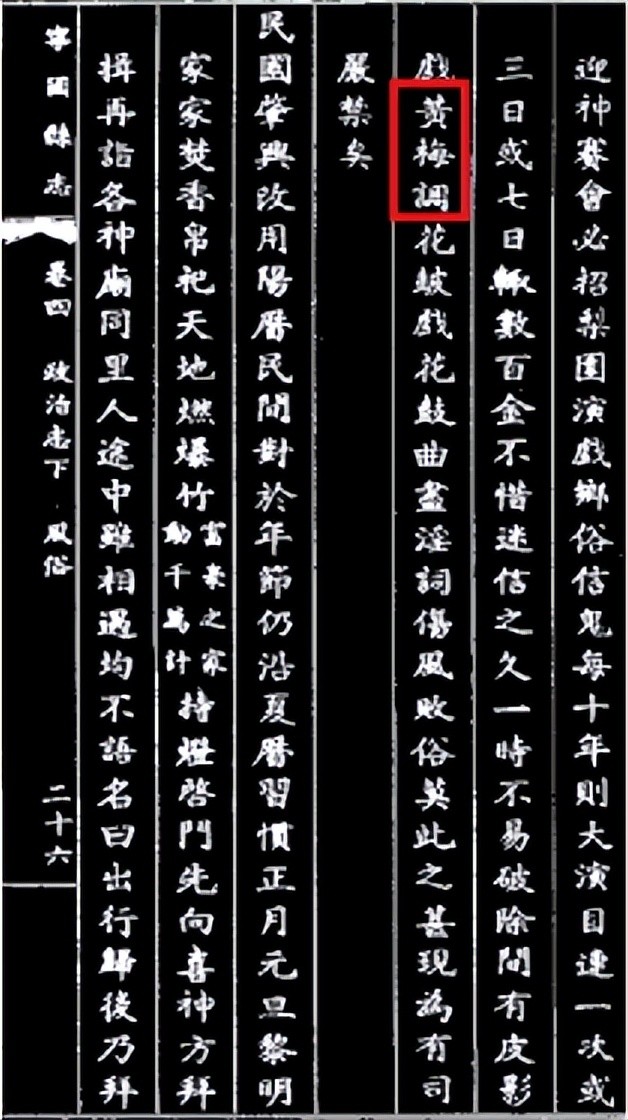 迎神賽會必招梨園演戲鄉俗信鬼每十年則大演目連一次或
三日或七日輒數百金不惜迷信之久一時不易破除間有皮影
戲黃梅調花鼓戲花鼓曲盡淫詞傷風敗俗莫此之甚現為有司
嚴禁矣
民國肇興改用陽曆民間對於年節仍沿夏曆習慣正月元旦黎明
家家焚香帛祀天地燃爆竹富豪之家動千萬計持燈啓門先向喜神方拜
揖再詣各神廟同里人途中雖相遇均不語名曰出行歸後乃拜
寧國縣志 卷四 政治志下 風俗 二十六